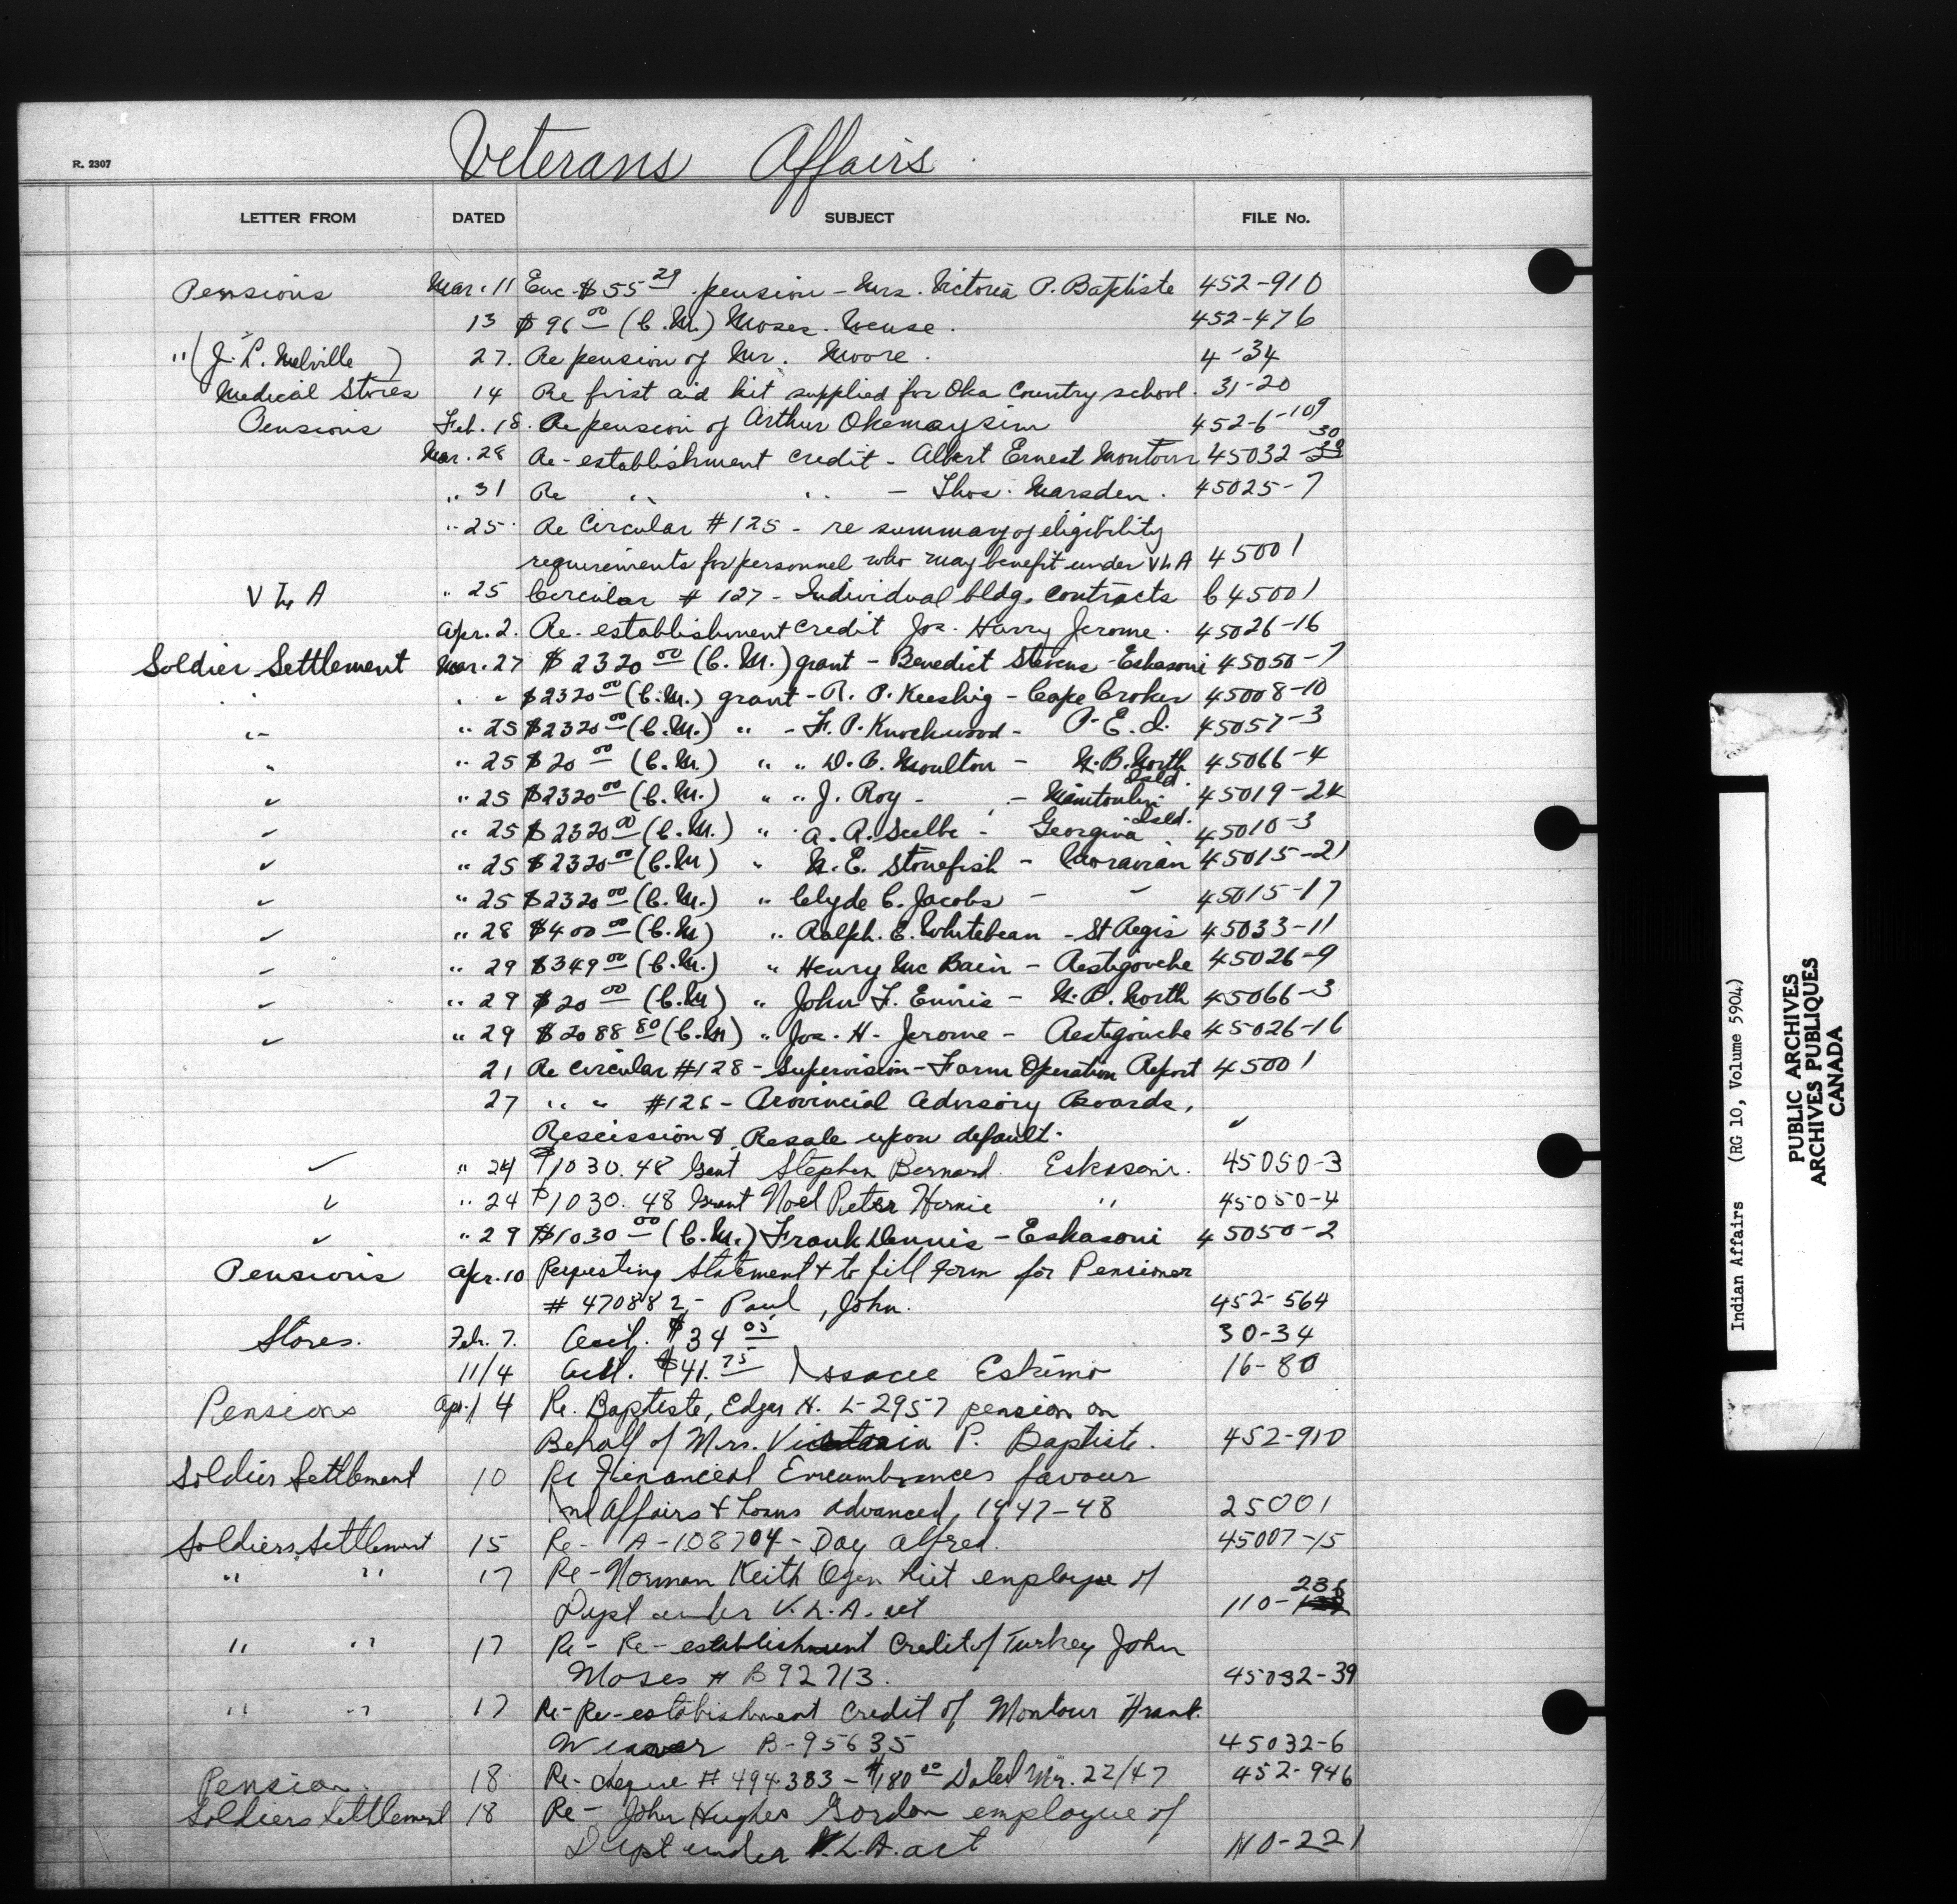 Veterans Affairs
R. 2307
LETTER FROM DATED SUBJECT FILE No.
Pensions Mar. 11 Enc. $55 29 pension - Mrs. Victoria P. Baptiste 452-910
13 $96 00 (C.M.) Moses 452-476
" (J. L. Melville) 27. Re pension of Mr. Moore. 4-34
Medical Stores 14 Re first aid kit supplied for Oka Country school. 31-20
Pensions Feb. 18. Re pension of Arthur Okemaysim 452-6-109
Mar. 28 Re-establishment credit - Albert Ernest Montour 45032-30
" 31 Re " " - Thos. Marsden. 45025-7
" 25 Re Circular #125 - re summary of eligibility
requirements for personnel who may benefit under VLA 45001
VLA " 25 Circular # 127 - Individual bldg. contracts C45001
Apr. 2. Re-establishment credit Jos. Harry Jerome. 45026-16
Soldier Settlement Mar. 27 $2320 00 (C.M.) grant - Benedict Stevens - Eskasoni 45050-7
" " " $2320 00 (C.M.) grant - R. P. Keeshig - Cape Croker 45008-10
" " 25 $2320 00 (C.M.) " - F. P. Knockwood - P.E.I. 45057-3
" " 25 $20 00 (C.M.) " " D. C. Moulton - N.B. North 45066-4
" " 25 $2320 00 (C.M.) " " J. Roy - - Manitoulin Isld. 45019-24
" " 25 $2320 00 (C.M.) " A. A. - Georgina Isld. 45010-3
" " 25 $2320 00 (C.M) " N. E. Stonefish - Moravian 45015-21
" " 25 $2320 00 (C.M.) " Clyde C. Jacobs - " 45015-17
" " 28 $400 00 (C.M) " Ralph. E. Whitebean - St Regis 45033-11
" " 29 $349 00 (C.M.) " Henry Mc Bain - Restigouche 45026-9
" " 29 $20 00 (C.M) " John F. Ennis - N.B. North 45066-3
" " 29 $2088 80 (C.M) " Jos. H. Jerome - Restigouche 45026-16
21 Re Circular #128 - Supervision - Farm Operation Report 45001
27 " " #126 - Provincial Advisory Boards,
Rescission & Resale upon default. "
" " 24 $1030.48 Grant Stephen Bernard Eskasoni. 45050-3
" " 24 $1030.48 Grant Noel Peter Hernie " 45050-4
" " 29 $1030 00 (C.M.) Frank Dennis - Eskasoni 45050-2
Pensions Apr. 10 Requesting Statement & to fill form for Pensioner
# 470882 - Paul, John. 452-564
Stores. Feb. 7. Acct. $34 05 30-34
11/4 Acct. $41.75 Issacee Eskimo 16-80
Pensions Apr. 14 Re. Baptiste, Edgar H. L-2957 pension on
Behalf of Mrs. Victoria P. Baptiste. 452-910
Soldier Settlement 10 Re Financial Encumbrances favour
Ind Affairs & Loans advanced, 1947-48 25001
Soldiers Settlement 15 Re- A-108704 - Day Alfred. 45007-15
" " 17 Re-Norman Keith Ogen employee of
Dept under V.L.A. act 110-236
" " 17 Re- Re-establishment Credit of Turkey John
Moses # B92713. 45032-39
" " 17 Re-Re-establishment Credit of Montour Frank
Weaver B-95635 45032-6
Pension 18 Re- cheque # 494383 - $180 00 Dated Mr. 22/47 452-946
Soldiers Settlement 18 Re- John Hughes Gordon employee of
Dept under V.L.A. act 110-221
Indian Affairs (RG 10, Volume 5904)
PUBLIC ARCHIVES
ARCHIVES PUBLIQUES
CANADA